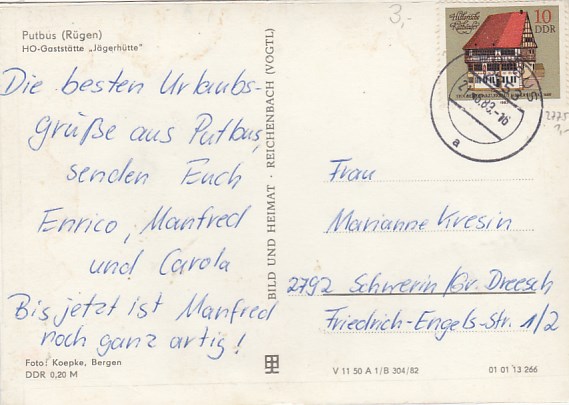 Putbus (Rügen)
HO-Gaststätte „Jägerhütte"
Die besten Urlaubs-
grüße aus Putbus,
senden Euch
Enrico, Manfred
und Carola
Bis jetzt ist Manfred
noch ganz artig!
Foto: Koepke, Bergen
DDR 0,20 M
BILD UND HEIMAT · REICHENBACH (VOGTL)
3,-
Historische Rathäuser
10
DDR
83.-16
a
2775
Frau
Marianne Kresin
2792 Schwerin/Gr. Dreesch
Friedrich-Engels-Str. 1/2
V 11 50 A 1/B 304/82
01 01 13 266